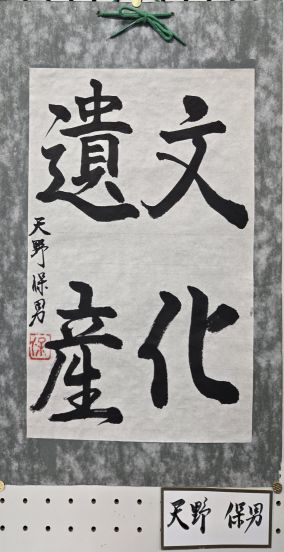 文化
遺産
天野保男
保
天野 保男